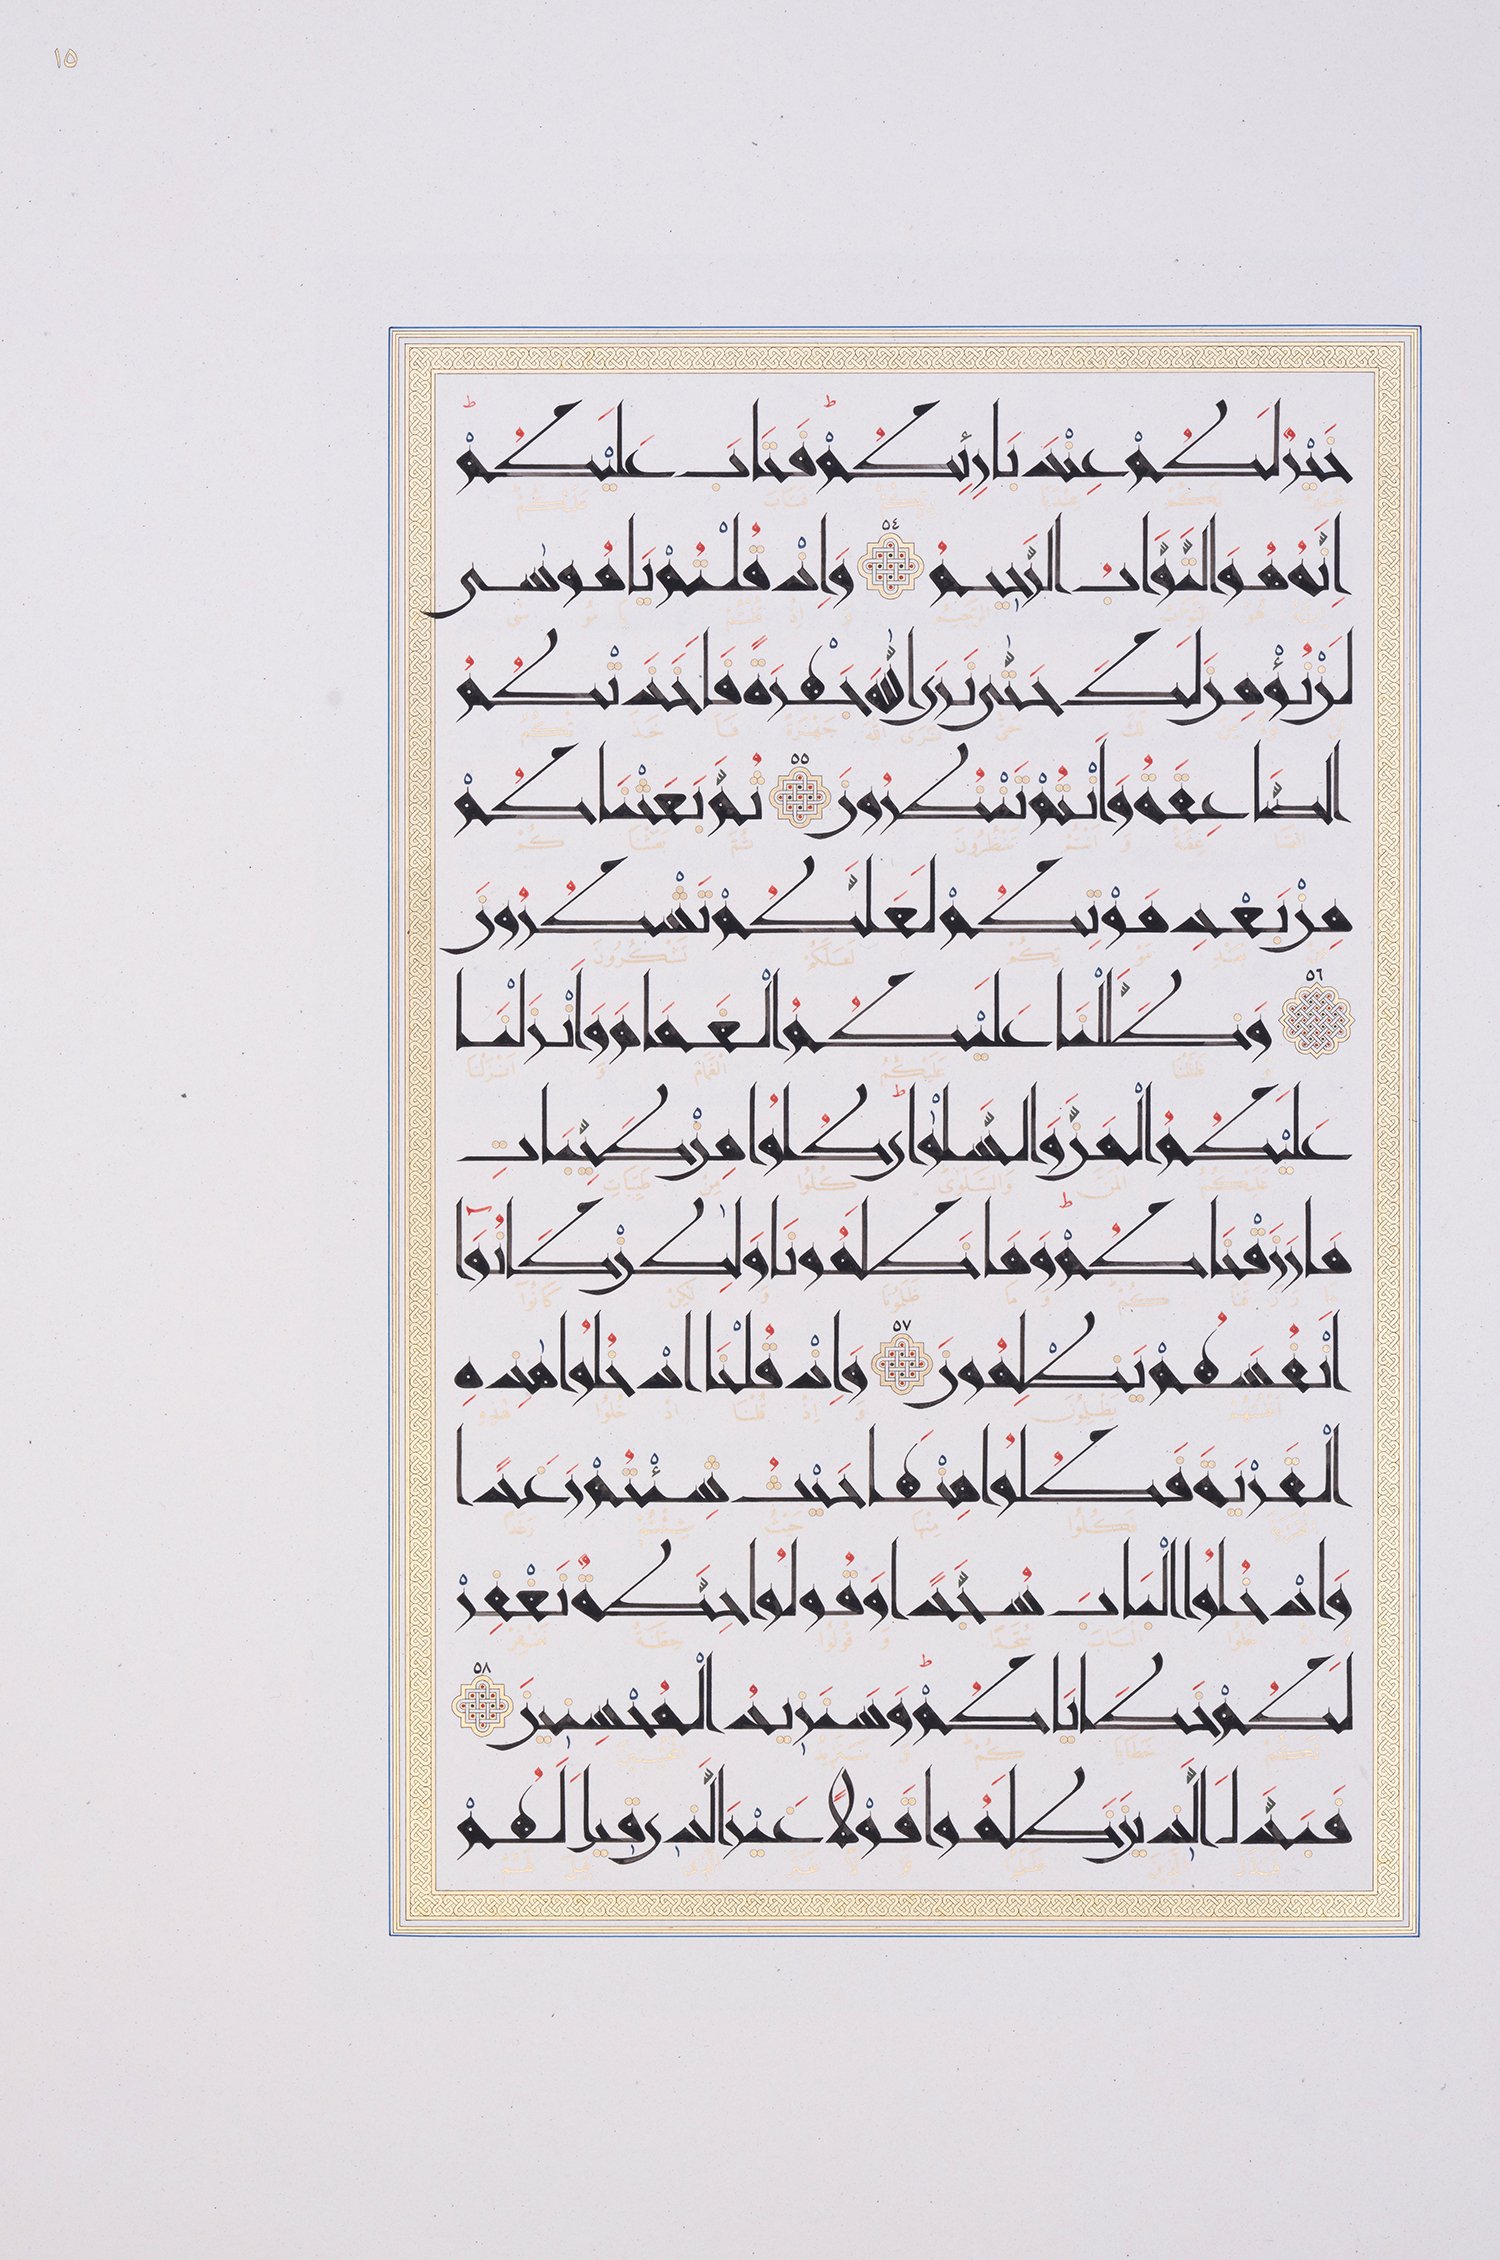 ١٥
خَيْرٌ لَكُمْ عِنْدَ بَارِئِكُمْ ؕ فَتَابَ عَلَيْكُمْ ؕ
اِنَّهُ هُوَ التَّوَّابُ الرَّحِيمُ ٥٤ وَاِذْ قُلْتُمْ يَا مُوسٰى
لَنْ نُؤْمِنَ لَكَ حَتّٰى نَرَى اللّٰهَ جَهْرَةً فَاَخَذَتْكُمُ
الصَّاعِقَةُ وَاَنْتُمْ تَنْظُرُونَ ٥٥ ثُمَّ بَعَثْنَاكُمْ
مِنْ بَعْدِ مَوْتِكُمْ لَعَلَّكُمْ تَشْكُرُونَ
٥٦ وَظَلَّلْنَا عَلَيْكُمُ الْغَمَامَ وَاَنْزَلْنَا
عَلَيْكُمُ الْمَنَّ وَالسَّلْوٰى ؕ كُلُوا مِنْ طَيِّبَاتِ
مَا رَزَقْنَاكُمْ ؕ وَمَا ظَلَمُونَا وَلٰكِنْ كَانُوٓا
اَنْفُسَهُمْ يَظْلِمُونَ ٥٧ وَاِذْ قُلْنَا ادْخُلُوا هٰذِهِ
الْقَرْيَةَ فَكُلُوا مِنْهَا حَيْثُ شِئْتُمْ رَغَدًا
وَادْخُلُوا الْبَابَ سُجَّدًا وَقُولُوا حِطَّةٌ نَغْفِرْ
لَكُمْ خَطَايَاكُمْ ؕ وَسَنَزِيدُ الْمُحْسِنِينَ ٥٨
فَبَدَّلَ الَّذِينَ ظَلَمُوا قَوْلًا غَيْرَ الَّذِى قِيلَ لَهُمْ